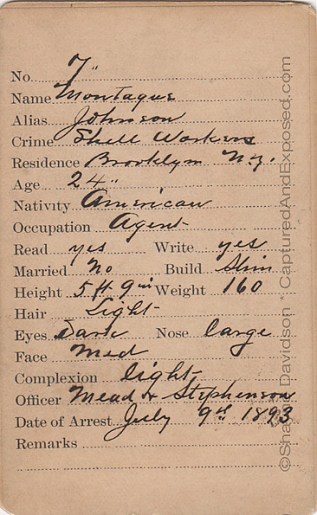 No. 7"
Name Montague
Alias Johnson
Crime Shell Workers
Residence Brooklyn N.Y.
Age 24"
Nativity American
Occupation Agent
Read yes Write yes
Married No Build Slim
Height 5 ft 9 in Weight 160
Hair Light
Eyes Dark Nose large
Face Med
Complexion light
Officer Mead & Stephenson
Date of Arrest July 9th 1893
Remarks
CapturedAndExposed.com
Davidson